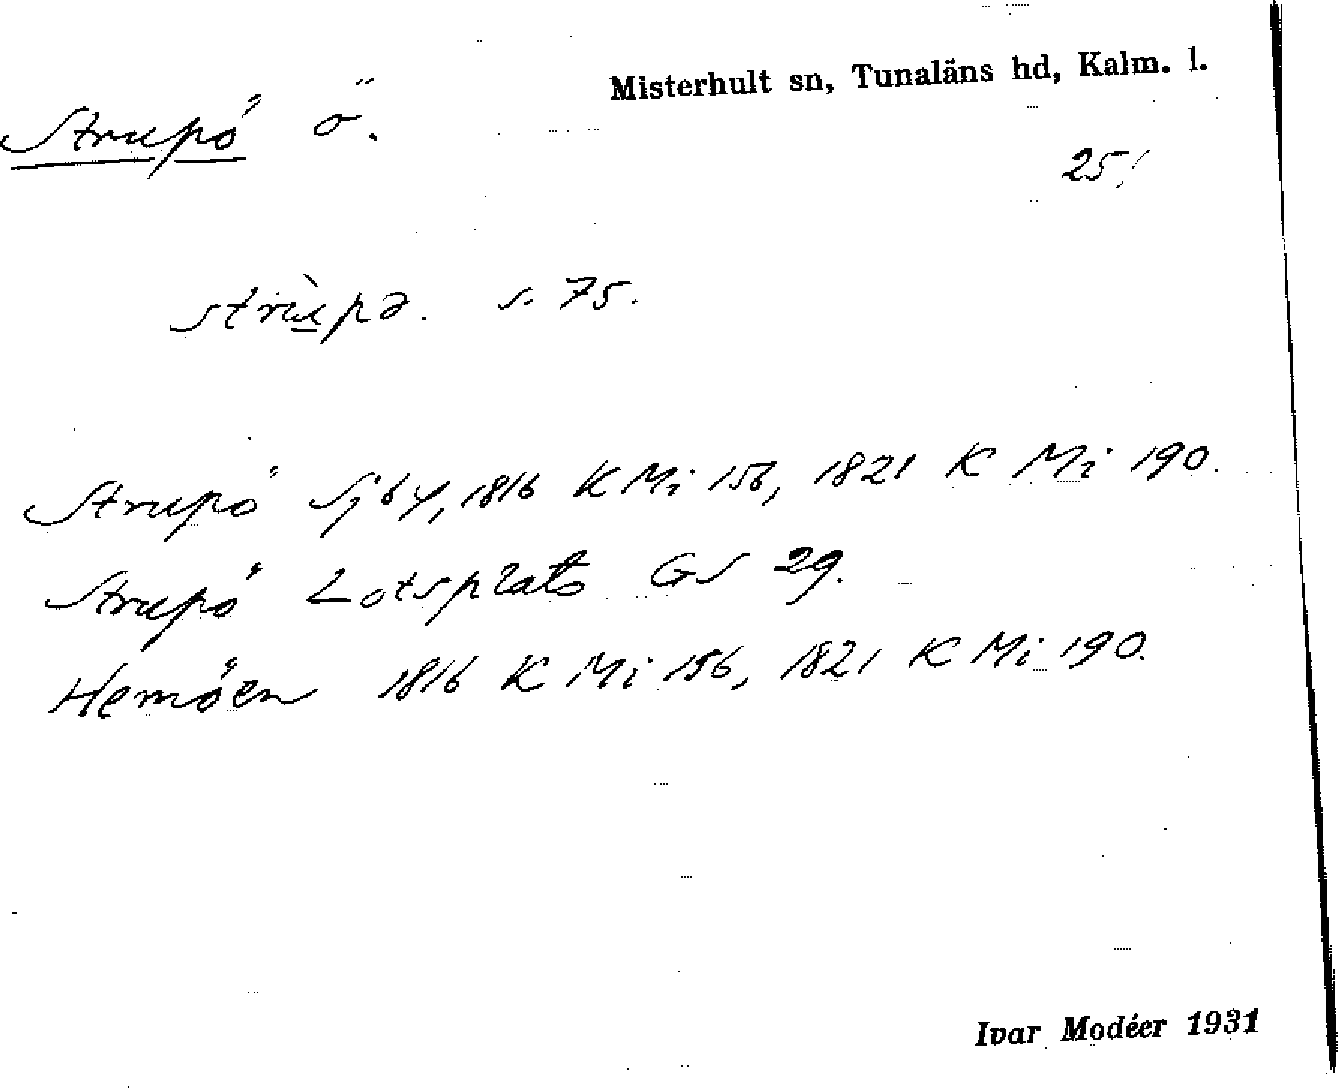 Misterhult sn, Tunaläns hd, Kalm. l.
Strupö ö.
25!
strùpə. s. 75.
Strupö Sjöby, 1816 K Mi 156, 1821 K Mi 190.
Strupö Lotsplats GS 29.
Hemöen 1816 K Mi 156, 1821 K Mi 190.
Ivar Modéer 1931